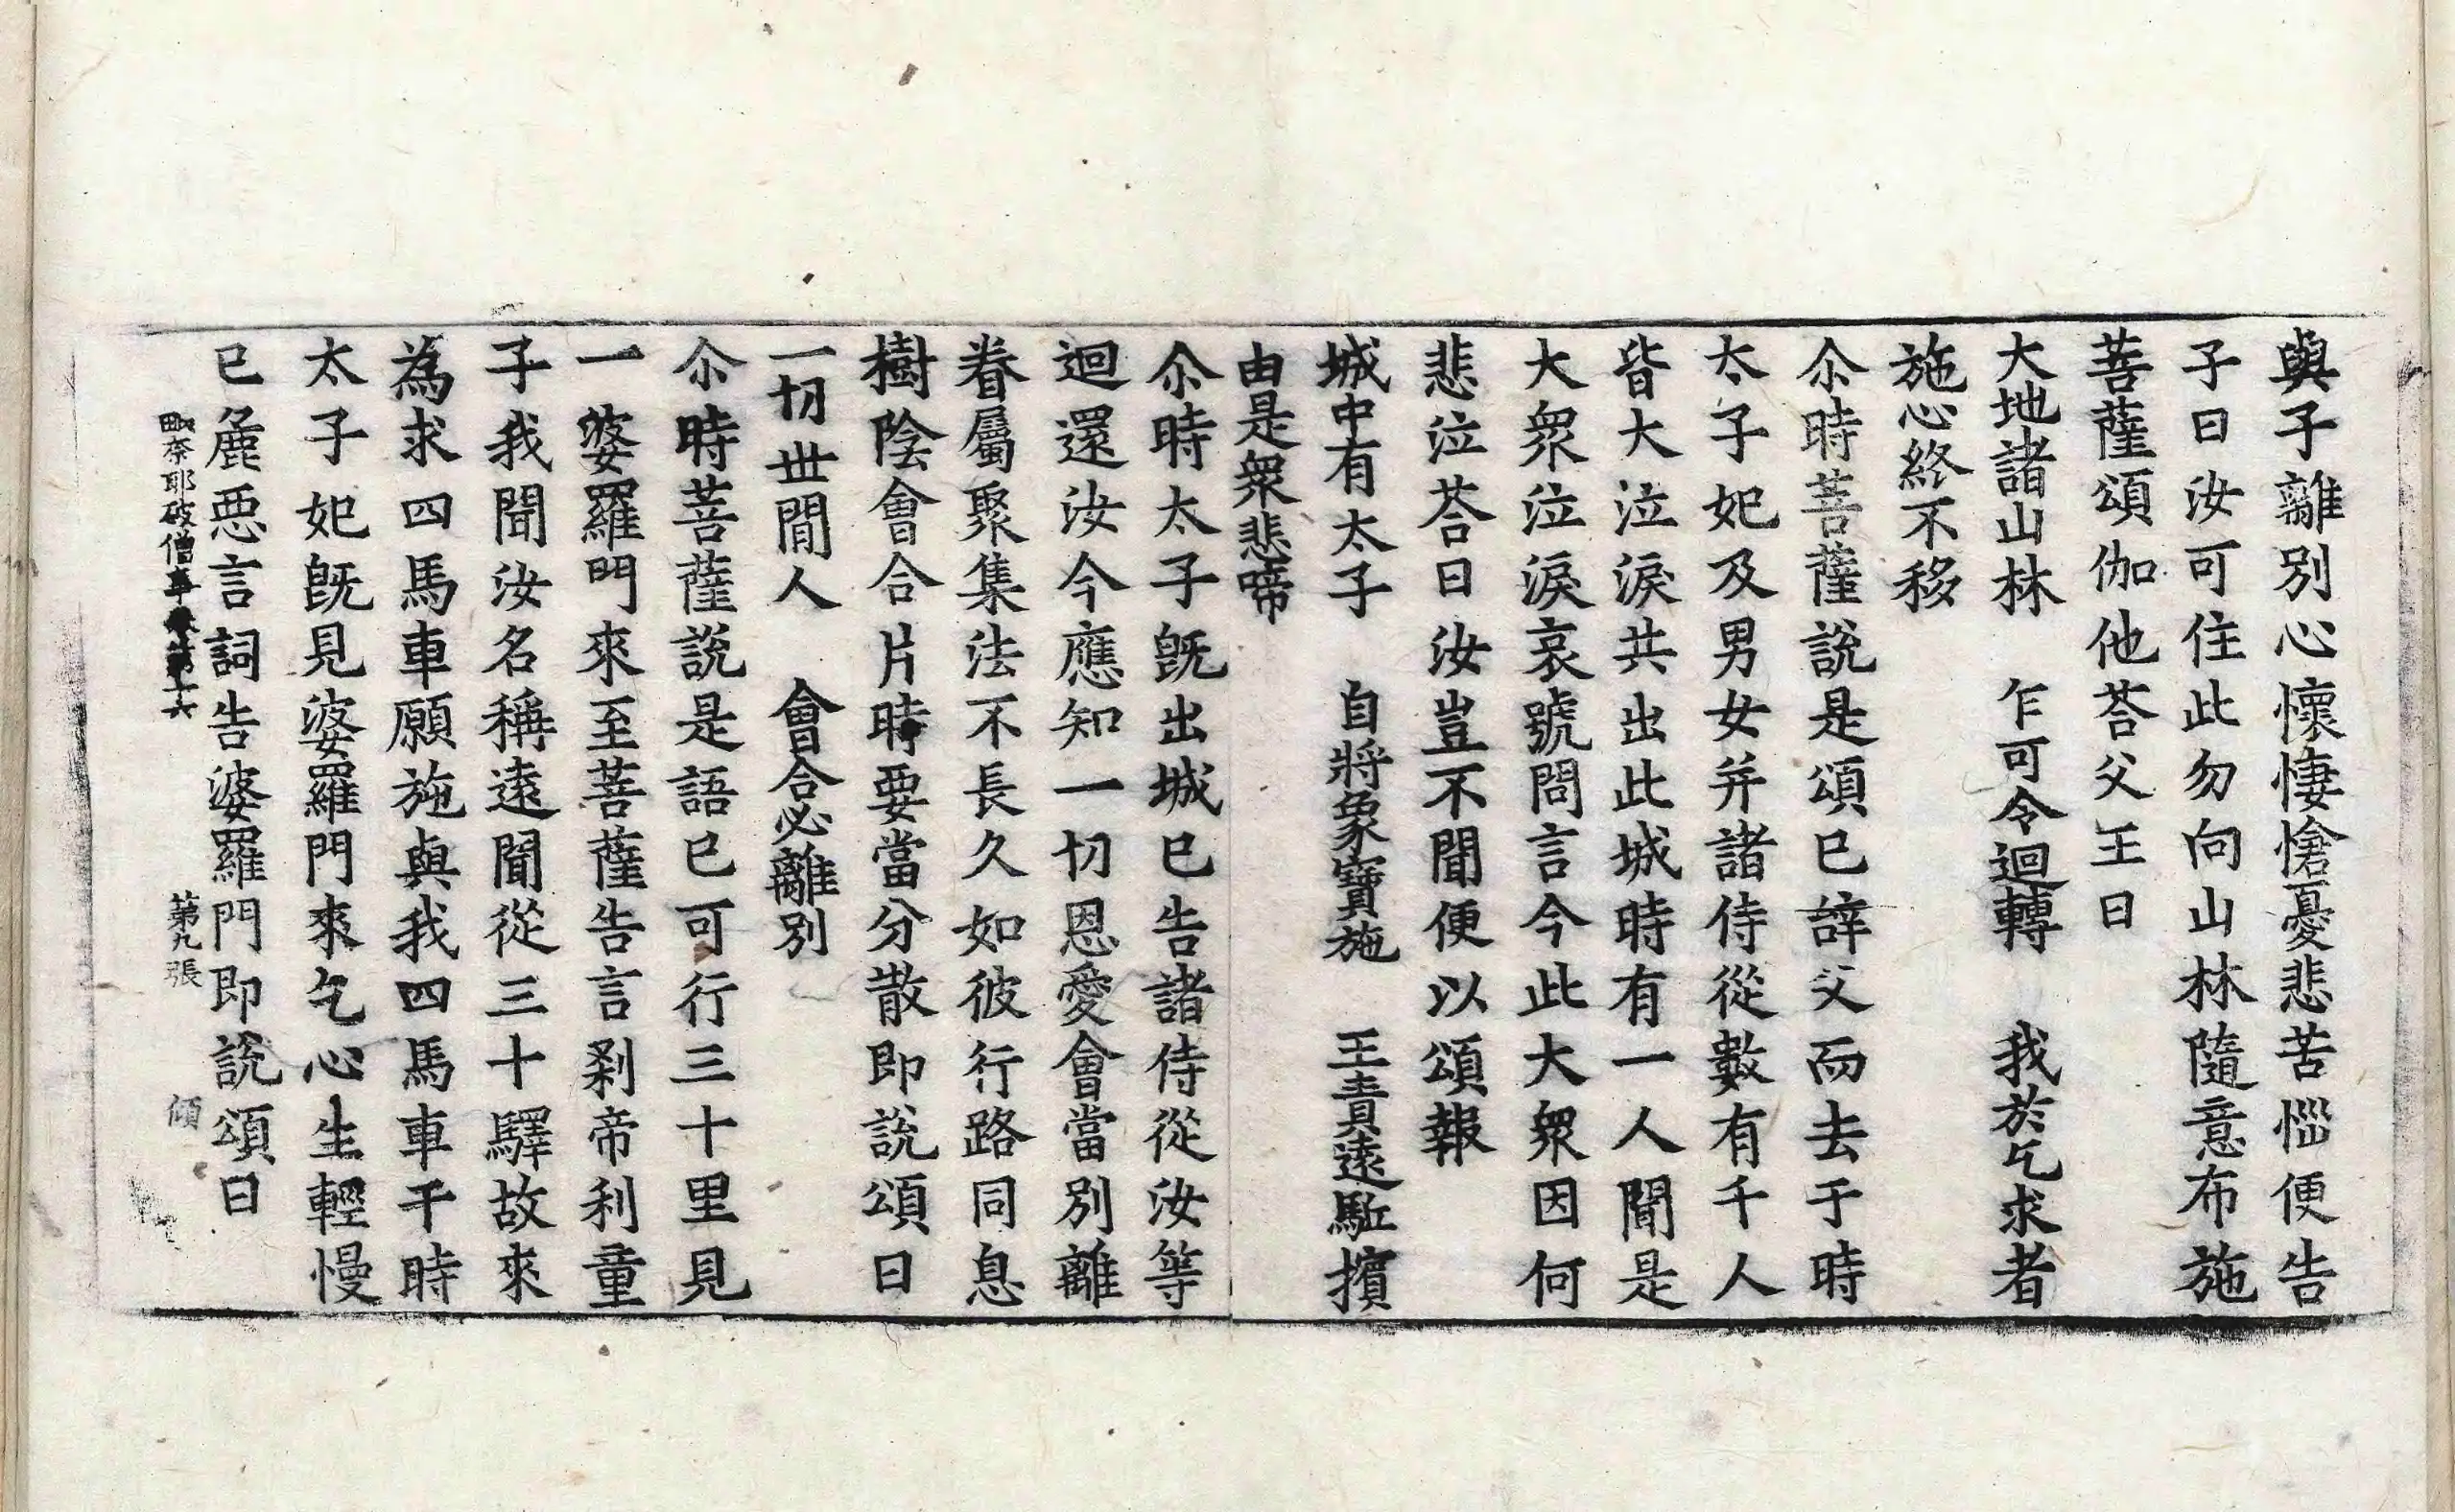 與子離別心懷悽愴憂悲苦惱便告
子曰汝可住此勿向山林隨意布施
菩薩頌伽他荅父王曰
大地諸山林　乍可令迴轉　我於乞求者
施心終不移
尒時菩薩說是頌已辝父而去于時
太子妃及男女并諸侍從數有千人
皆大泣淚共出此城時有一人聞是
大衆泣淚哀號問言今此大衆因何
悲泣荅曰汝豈不聞便以頌報
城中有太子　自將象寶施　王責遠駈擯
由是衆悲啼
尒時太子旣出城已告諸侍從汝等
迴還汝今應知一切恩愛會當別離
眷屬聚集法不長久如彼行路同息
樹陰會合片時要當分散即說頌曰
一切世間人　會合必離別
尒時菩薩說是語已可行三十里見
一婆羅門來至菩薩告言剎帝利童
子我聞汝名稱遠聞從三十驛故來
為求四馬車願施與我四馬車于時
太子妃旣見婆羅門來乞心生輕慢
已麁惡言詞告婆羅門即說頌曰
毗奈耶破僧事卷第十六　第九張　傾